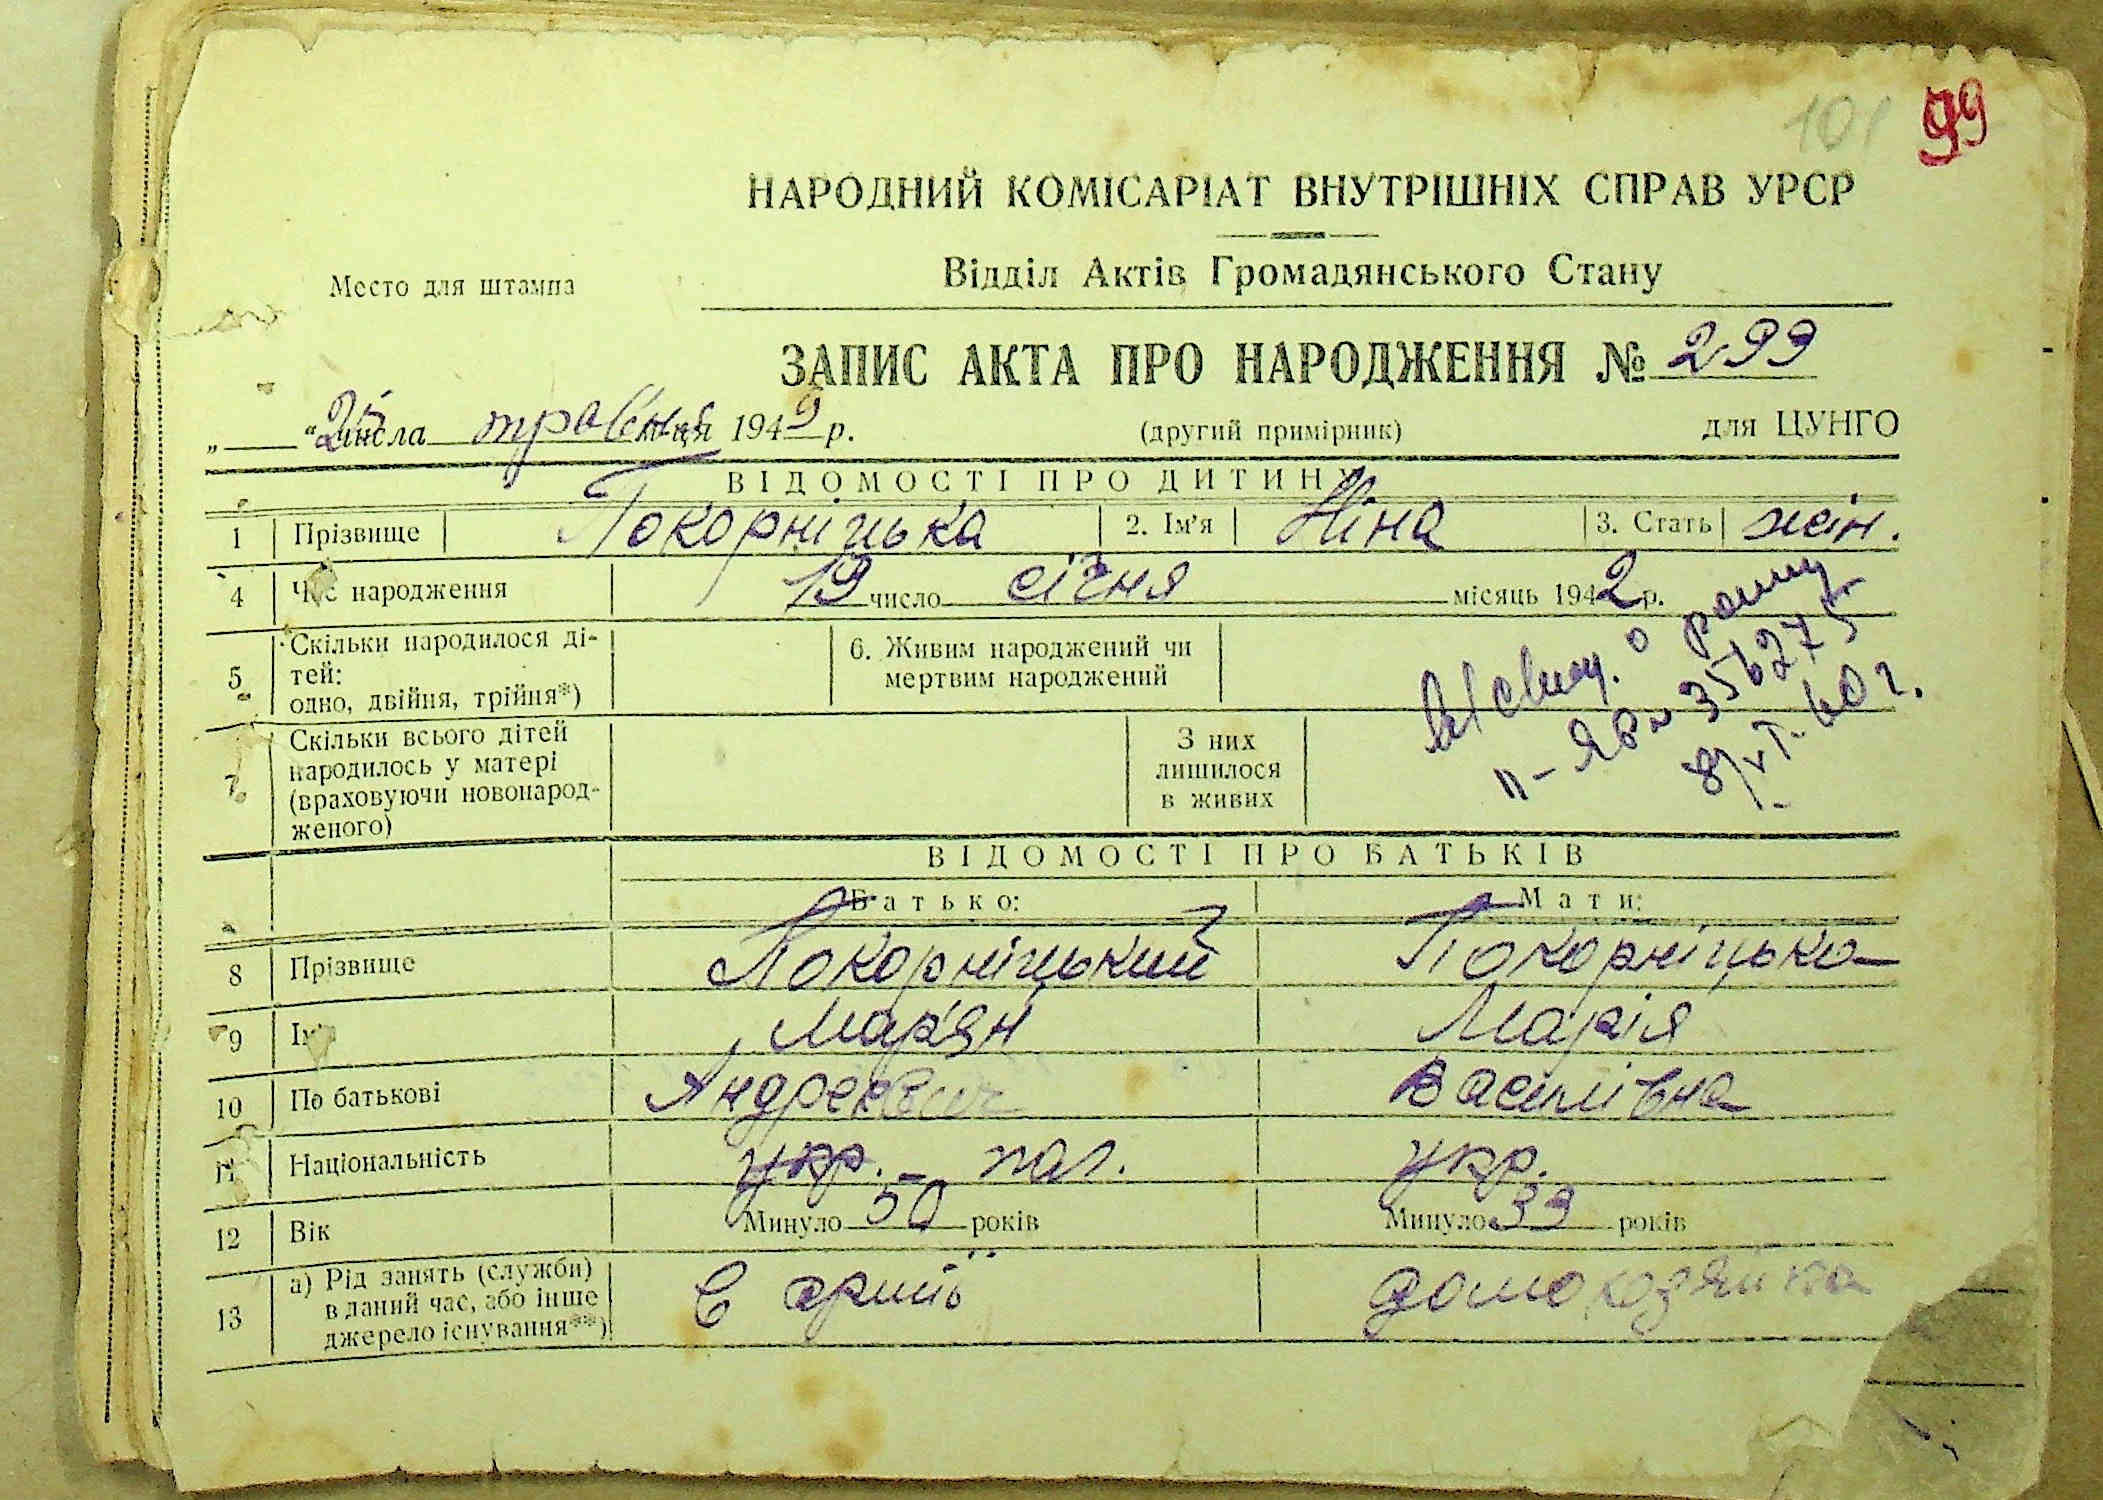 101 99
НАРОДНИЙ КОМІСАРІАТ ВНУТРІШНІХ СПРАВ УРСР
Место для штампа
Відділ Актів Громадянського Стану
ЗАПИС АКТА ПРО НАРОДЖЕННЯ № 299
„ “ числа травня місяця 1949 р. (другий примірник) для ЦУНГО
ВІДОМОСТІ ПРО ДИТИНУ
1 Прізвище Покорніцька 2. Ім'я Ніна 3. Стать жін.
4 Час народження 19 число січня місяць 1942 р.
5 Скільки народилося ді-
тей:
одно, двійня, трійня*)
6. Живим народжений чи
мертвим народжений
7 Скільки всього дітей
народилось у матері
(враховуючи новонарод-
женого)
З них
лишилося
в живих
свид. о
II-ЯБ № 356275
8/VI-60 г.
ВІДОМОСТІ ПРО БАТЬКІВ
Батько: Мати:
8 Прізвище Покорніцький Покорніцька
9 Ім'я Мар'ян Марія
10 По батькові Андреевич Василівна
11 Національність укр. пол. укр.
12 Вік Минуло 50 років Минуло 33 років
13 а) Рід занять (служби)
в даний час, або інше
джерело існування**)
В армії домохозяйка